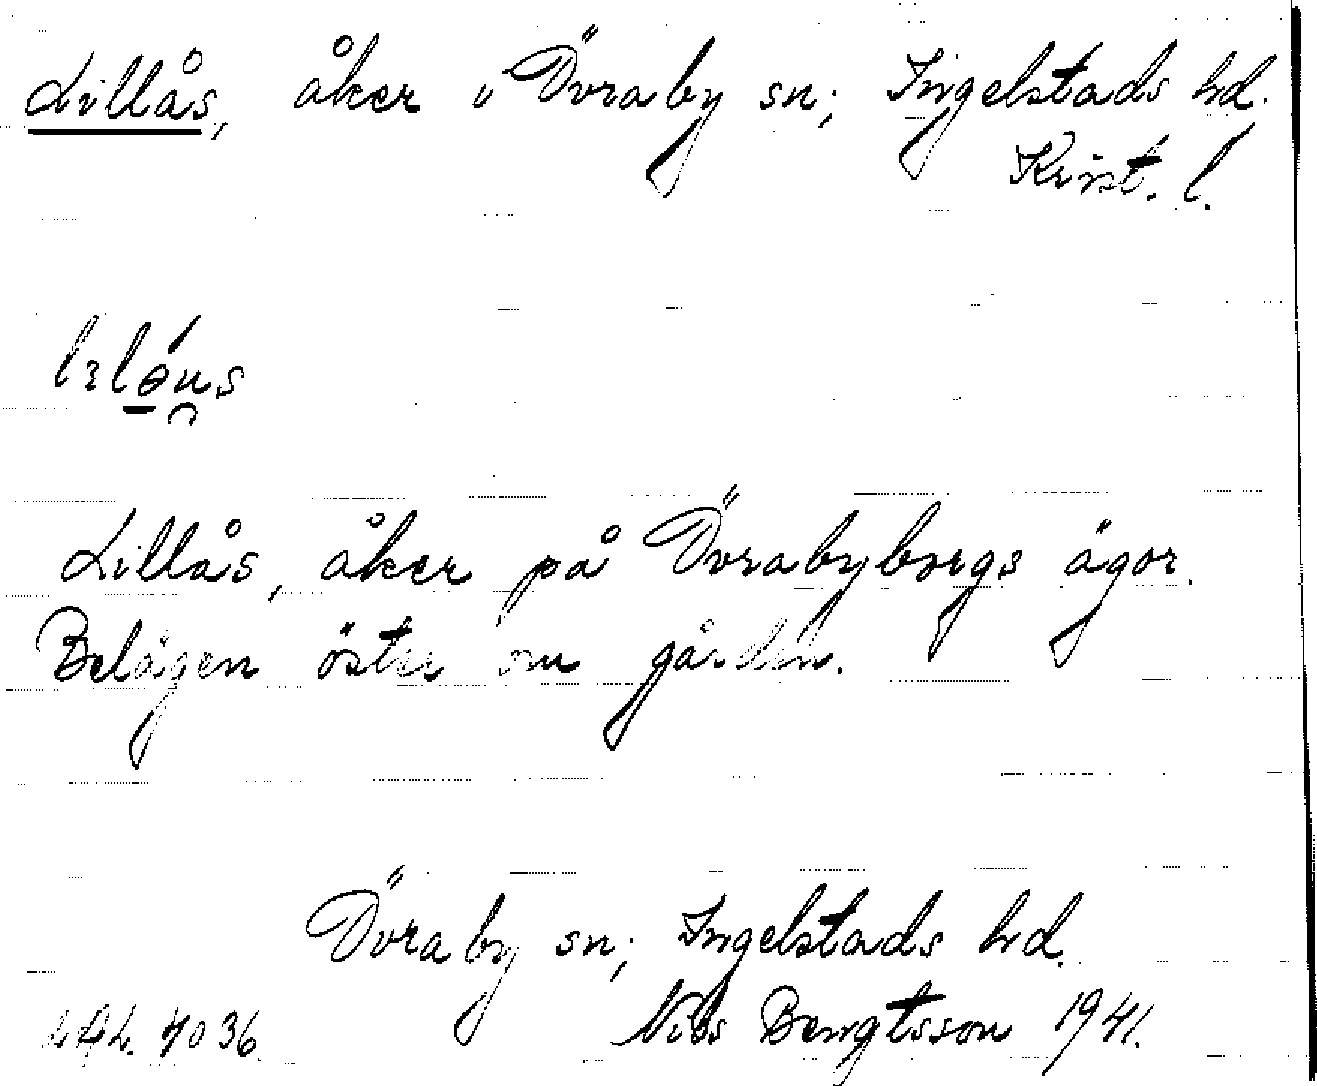 Lillås, åker i Övraby sn; Ingelstads hd.
Krist. l.
Lillås, åker på Övrabyborgs ägor.
Belägen öster om gården.
Övraby sn; Ingelstads hd.
Nils Bengtsson 1941.
LAL. 4036